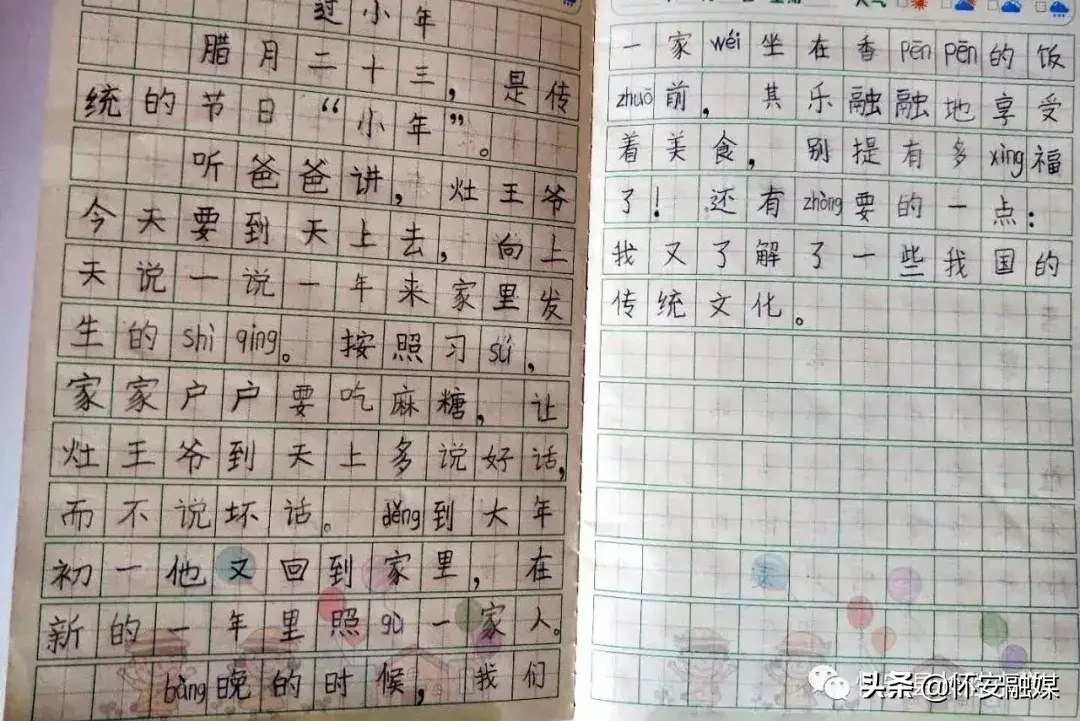 过小年
腊月二十三，是传
统的节日“小年”。
听爸爸讲，灶王爷
今天要到天上去，向上
天说一说一年来家里发
生的shì qing。按照习sú，
家家户户要吃麻糖，让
灶王爷到天上多说好话，
而不说坏话。děng到大年
初一他又回到家里，在
新的一年里照gù一家人。
bàng晚的时候，我们
一家wéi坐在香pēn pēn的饭
zhuō前，其乐融融地享受
着美食，别提有多xìng福
了！还有zhòng要的一点：
我又了解了一些我国的
传统文化。
头条@怀安融媒